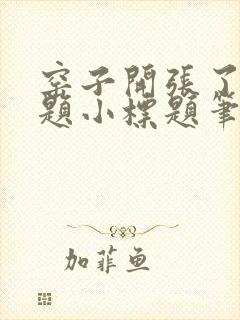 窑子開張了
題小標題筆
加菲鱼